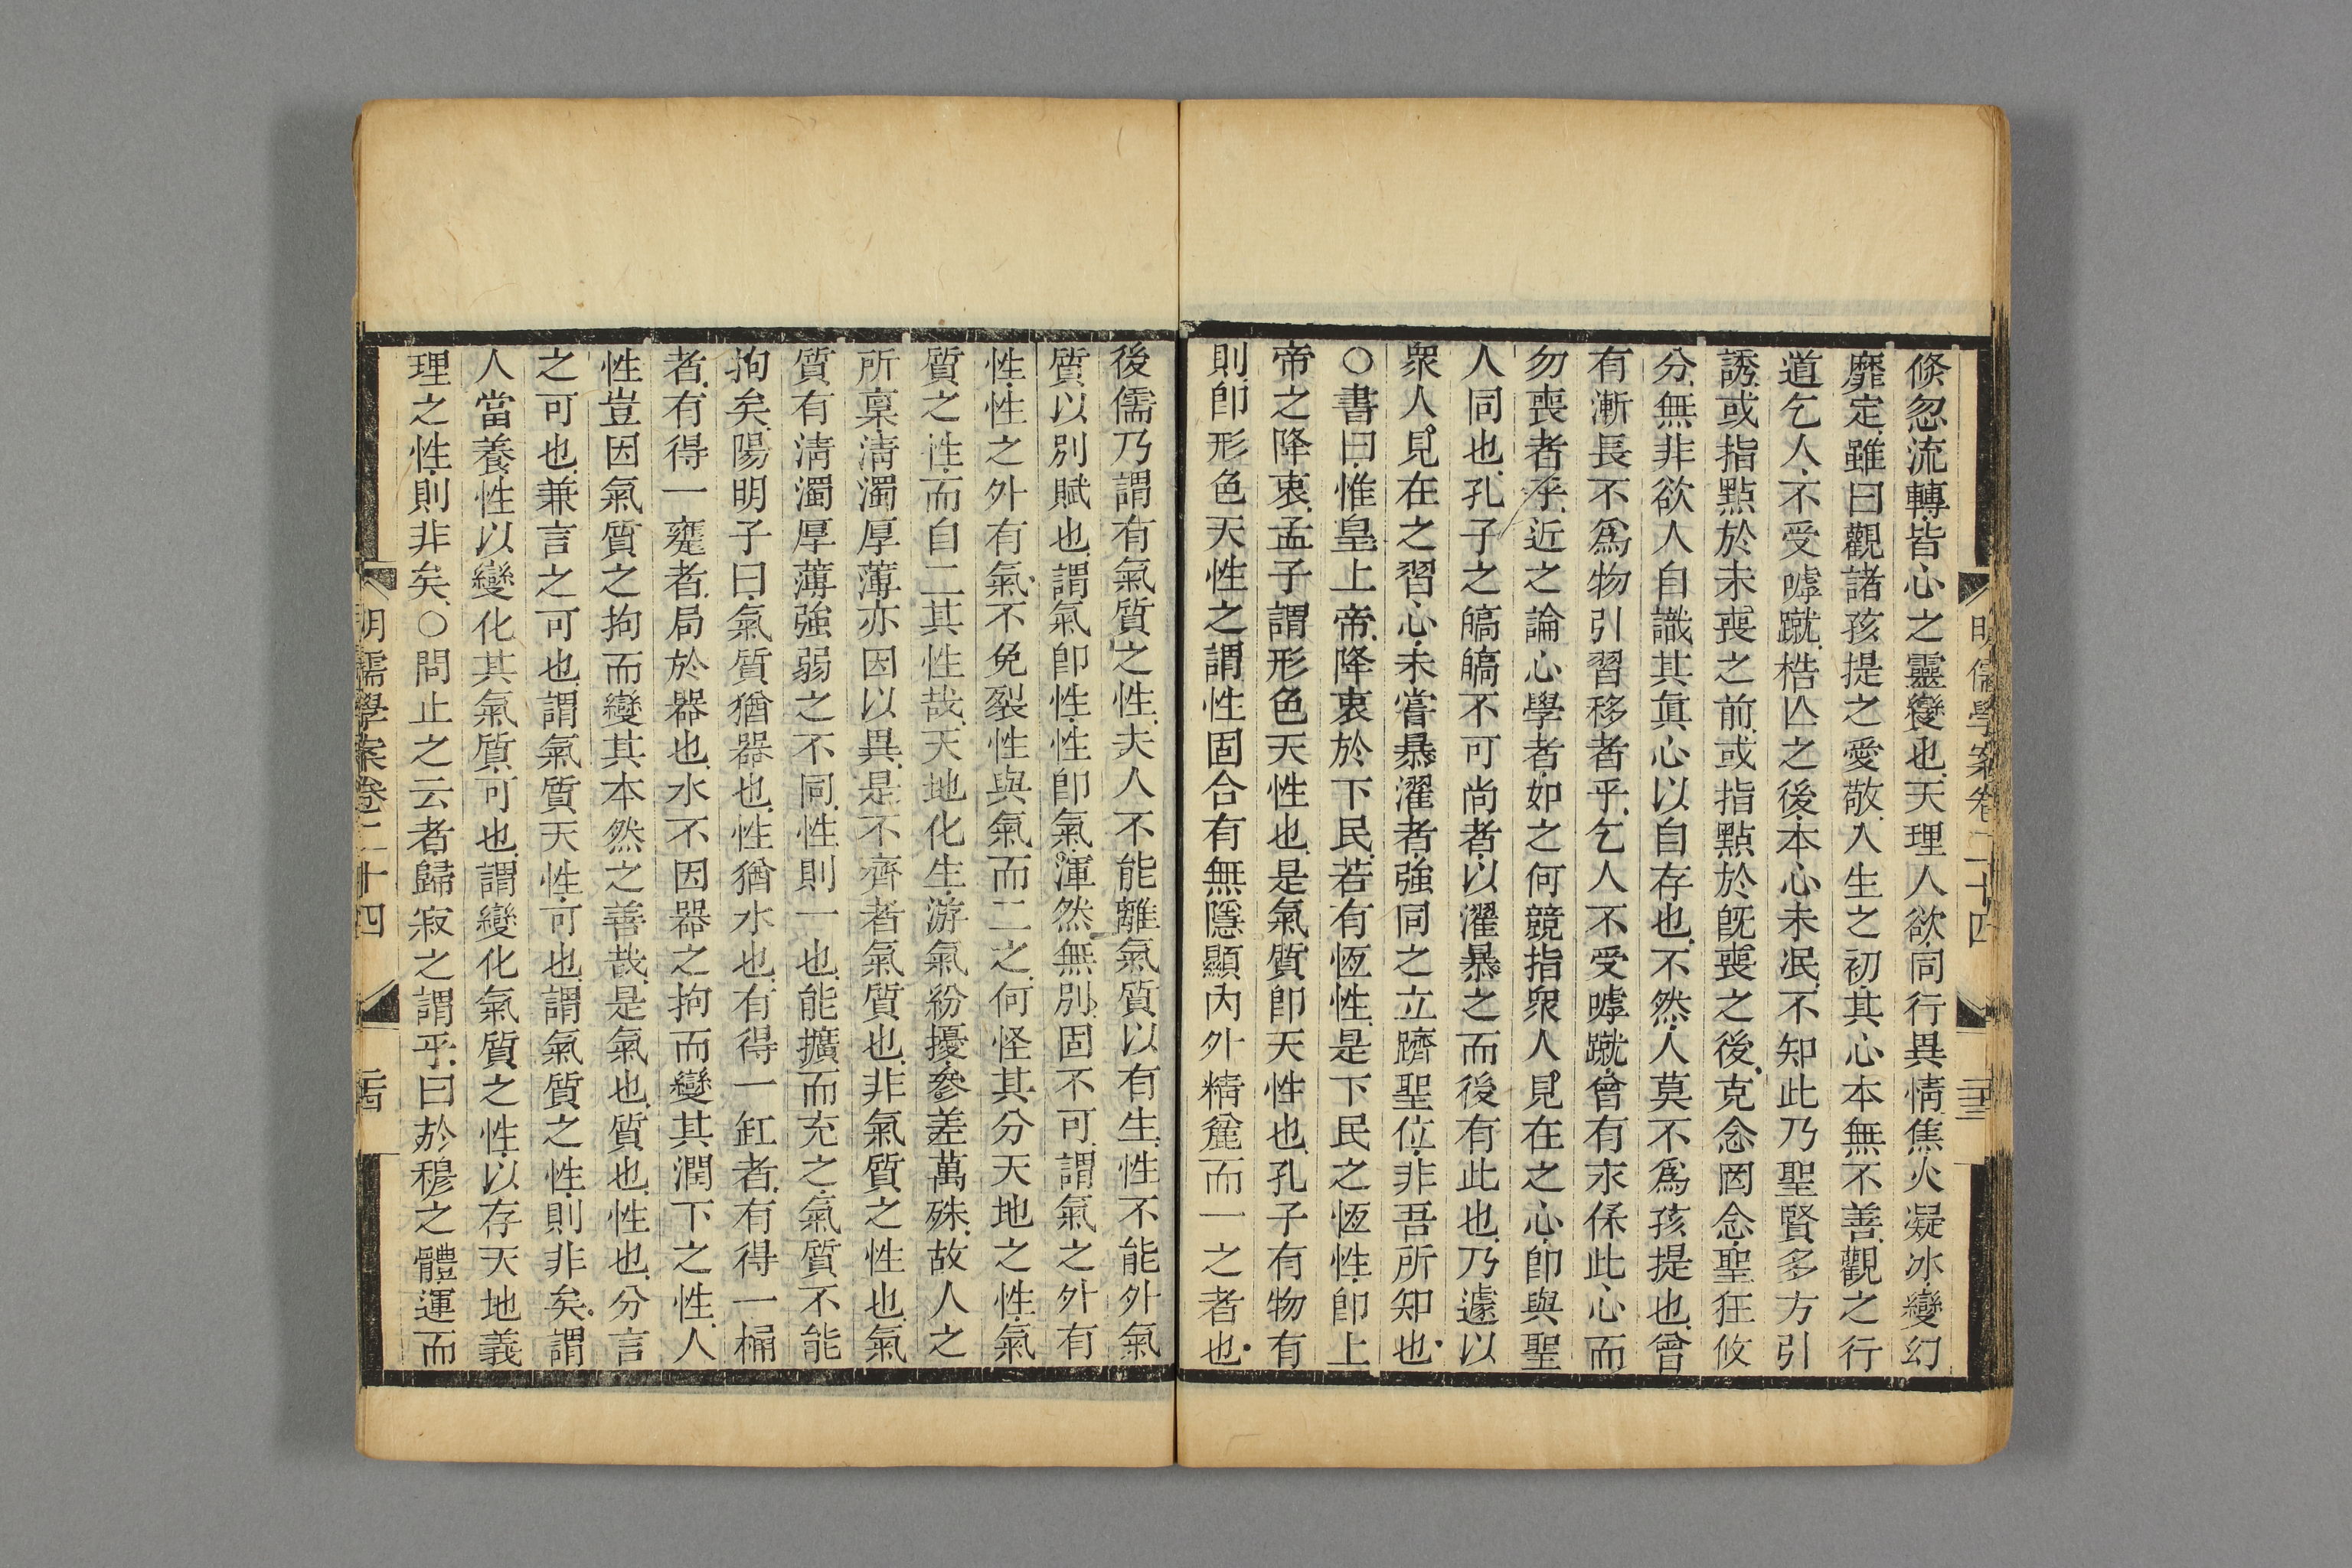 明儒學案卷二十四 二十三
倏忽流轉皆心之靈變也天理人欲同行異情焦火凝冰變幻
靡定雖曰觀諸孩提之愛敬人生之初其心本無不善觀之行
道乞人不受嘑蹴梏亾之後本心未泯不知此乃聖賢多方引
誘或指點於未喪之前或指點於旣喪之後克念罔念聖狂攸
分無非欲人自識其眞心以自存也不然人莫不爲孩提也曾
有漸長不爲物引習移者乎乞人不受嘑蹴曾有永保此心而
勿喪者乎近之論心學者如之何競指衆人見在之心卽與聖
人同也孔子之皜皜不可尚者以濯暴之而後有此也乃遽以
衆人見在之習心未嘗暴濯者強同之立躋聖位非吾所知也
〇書曰惟皇上帝降衷於下民若有恆性是下民之恆性卽上
帝之降衷孟子謂形色天性也是氣質卽天性也孔子有物有
則卽形色天性之謂性固合有無隱顯內外精麄而一之者也
後儒乃謂有氣質之性夫人不能離氣質以有生性不能外氣
質以別賦也謂氣卽性性卽氣渾然無別固不可謂氣之外有
性性之外有氣不免裂性與氣而二之何怪其分天地之性氣
質之性而自二其性哉天地化生游氣紛擾參差萬殊故人之
所稟淸濁厚薄亦因以異是不齊者氣質也非氣質之性也氣
質有淸濁厚薄強弱之不同性則一也能擴而充之氣質不能
拘矣陽明子曰氣質猶器也性猶水也有得一缸者有得一桶
者有得一甕者局於器也水不因器之拘而變其潤下之性人
性豈因氣質之拘而變其本然之善哉是氣也質也性也分言
之可也兼言之可也謂氣質天性可也謂氣質之性則非矣謂
人當養性以變化其氣質可也謂變化氣質之性以存天地義
理之性則非矣〇問止之云者歸寂之謂乎曰於穆之體運而
明儒學案卷二十四 二十四